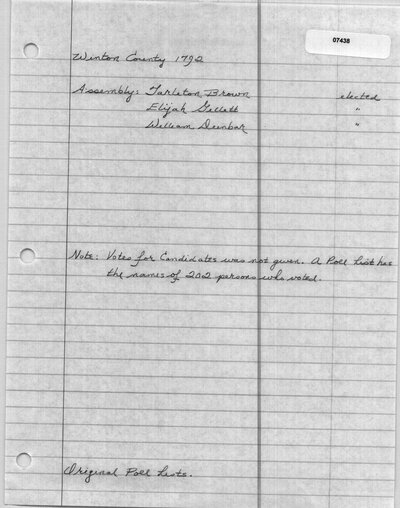 07438
Winton County 1792
Assembly: Tarleton Brown elected
Elijah Gillett "
William Dunbar "
Note: Votes for Candidates was not given. A Poll List has
the names of 202 persons who voted.
Original Poll Lists.